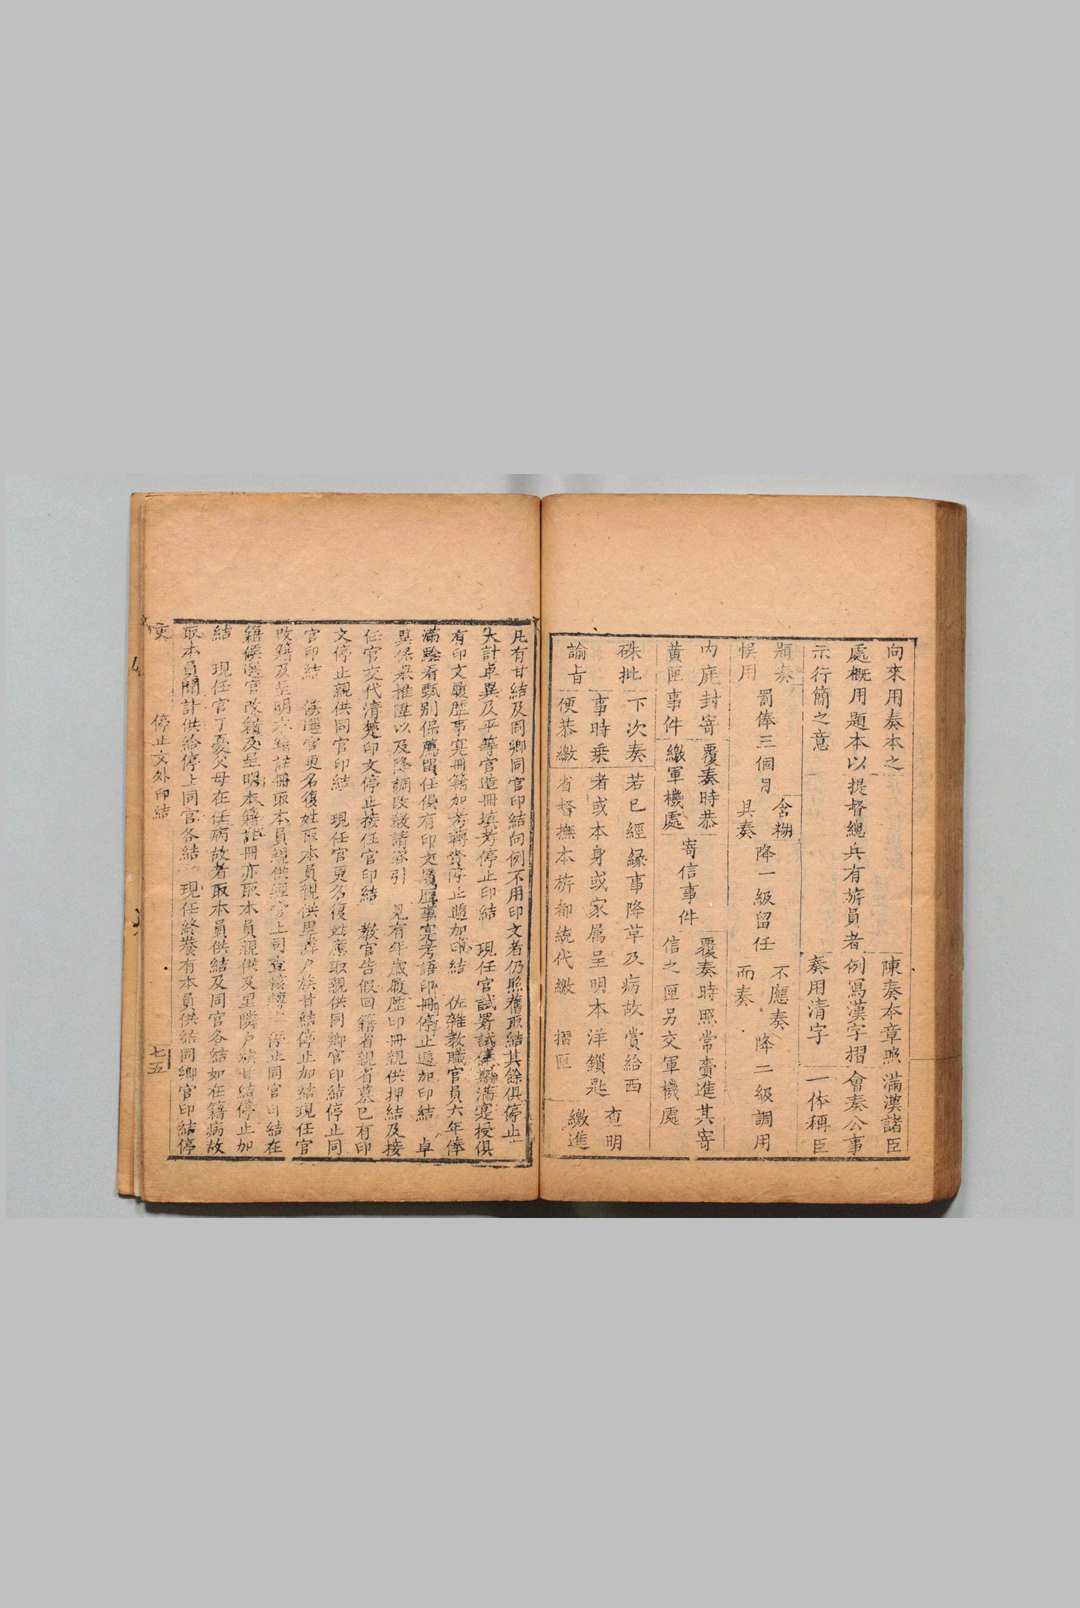 向來用奏本之
處概用題本以
示行簡之意
提督總兵有旂員者
陳奏本章照
例寫漢字摺
奏用清字
滿漢諸臣
會奏公事
一体稱臣
題奏
悞用
罰俸三個月
含糊
具奏
降一級留任
不應奏
而奏
降二級調用
内庭封寄
黄匣事件
覆奏時恭
繳軍機處
寄信事件
覆奏時照常賫進其寄
信之匣另交軍機處
硃批
諭旨
下次奏
事時乗
便恭繳
若已經緣事降革及病故賞給西
者或本身或家属呈明本洋鎖匙
省督撫本旂都統代繳
摺匣
查明
繳進
凡有甘結及同鄉同官印結向例不用印文者仍照舊取結其餘俱停止
大計卓異及平等官造冊填考停止印結 現任官試署試俸歷滿寔授俱
有印文履歷事寔冊籍加考 停止逓加印結 佐雜教職官員六年俸
滿騐看甄别保薦留任俱有印文履歷事寔考語印冊停止逓加印結 卓
異保舉推陞以及降調改教請咨引 見有年歲履歷印冊親供押結及接
任官交代清楚印文停止接任官印結 教官告假回籍省親省墓已有印
文停止親供同官印結 現任官更名復姓應取親供同鄉官印結停止同
官印結 候選官更名復姓取本員親供里鄰户族甘結停止加結現任官
改籍及呈明本籍註冊取本員親供經官上司查核轉 停止同官印結在
籍候選官改籍及呈明本籍註冊亦取本員親供及里隣户族甘結停止加
結 現任官丁憂父母在任病故者取本員供結及同官各結如在籍病故
取本員聞訃供結停上同官各結 現任終養有本員供結同鄉官印結停
吏
停止文外印結
七五